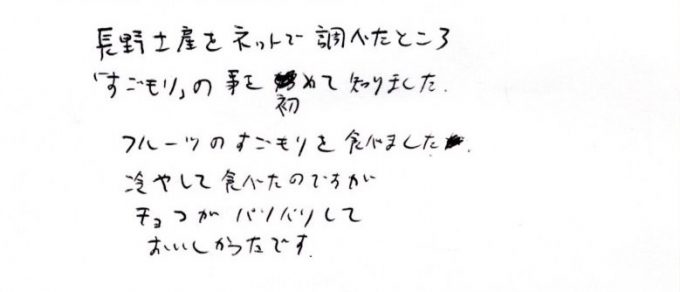 長野土産をネットで調べたところ
「すごもり」の事を初めて知りました.
フルーツのすごもりを食べました.
冷やして食べたのですが
チョコがパリパリして
おいしかったです.